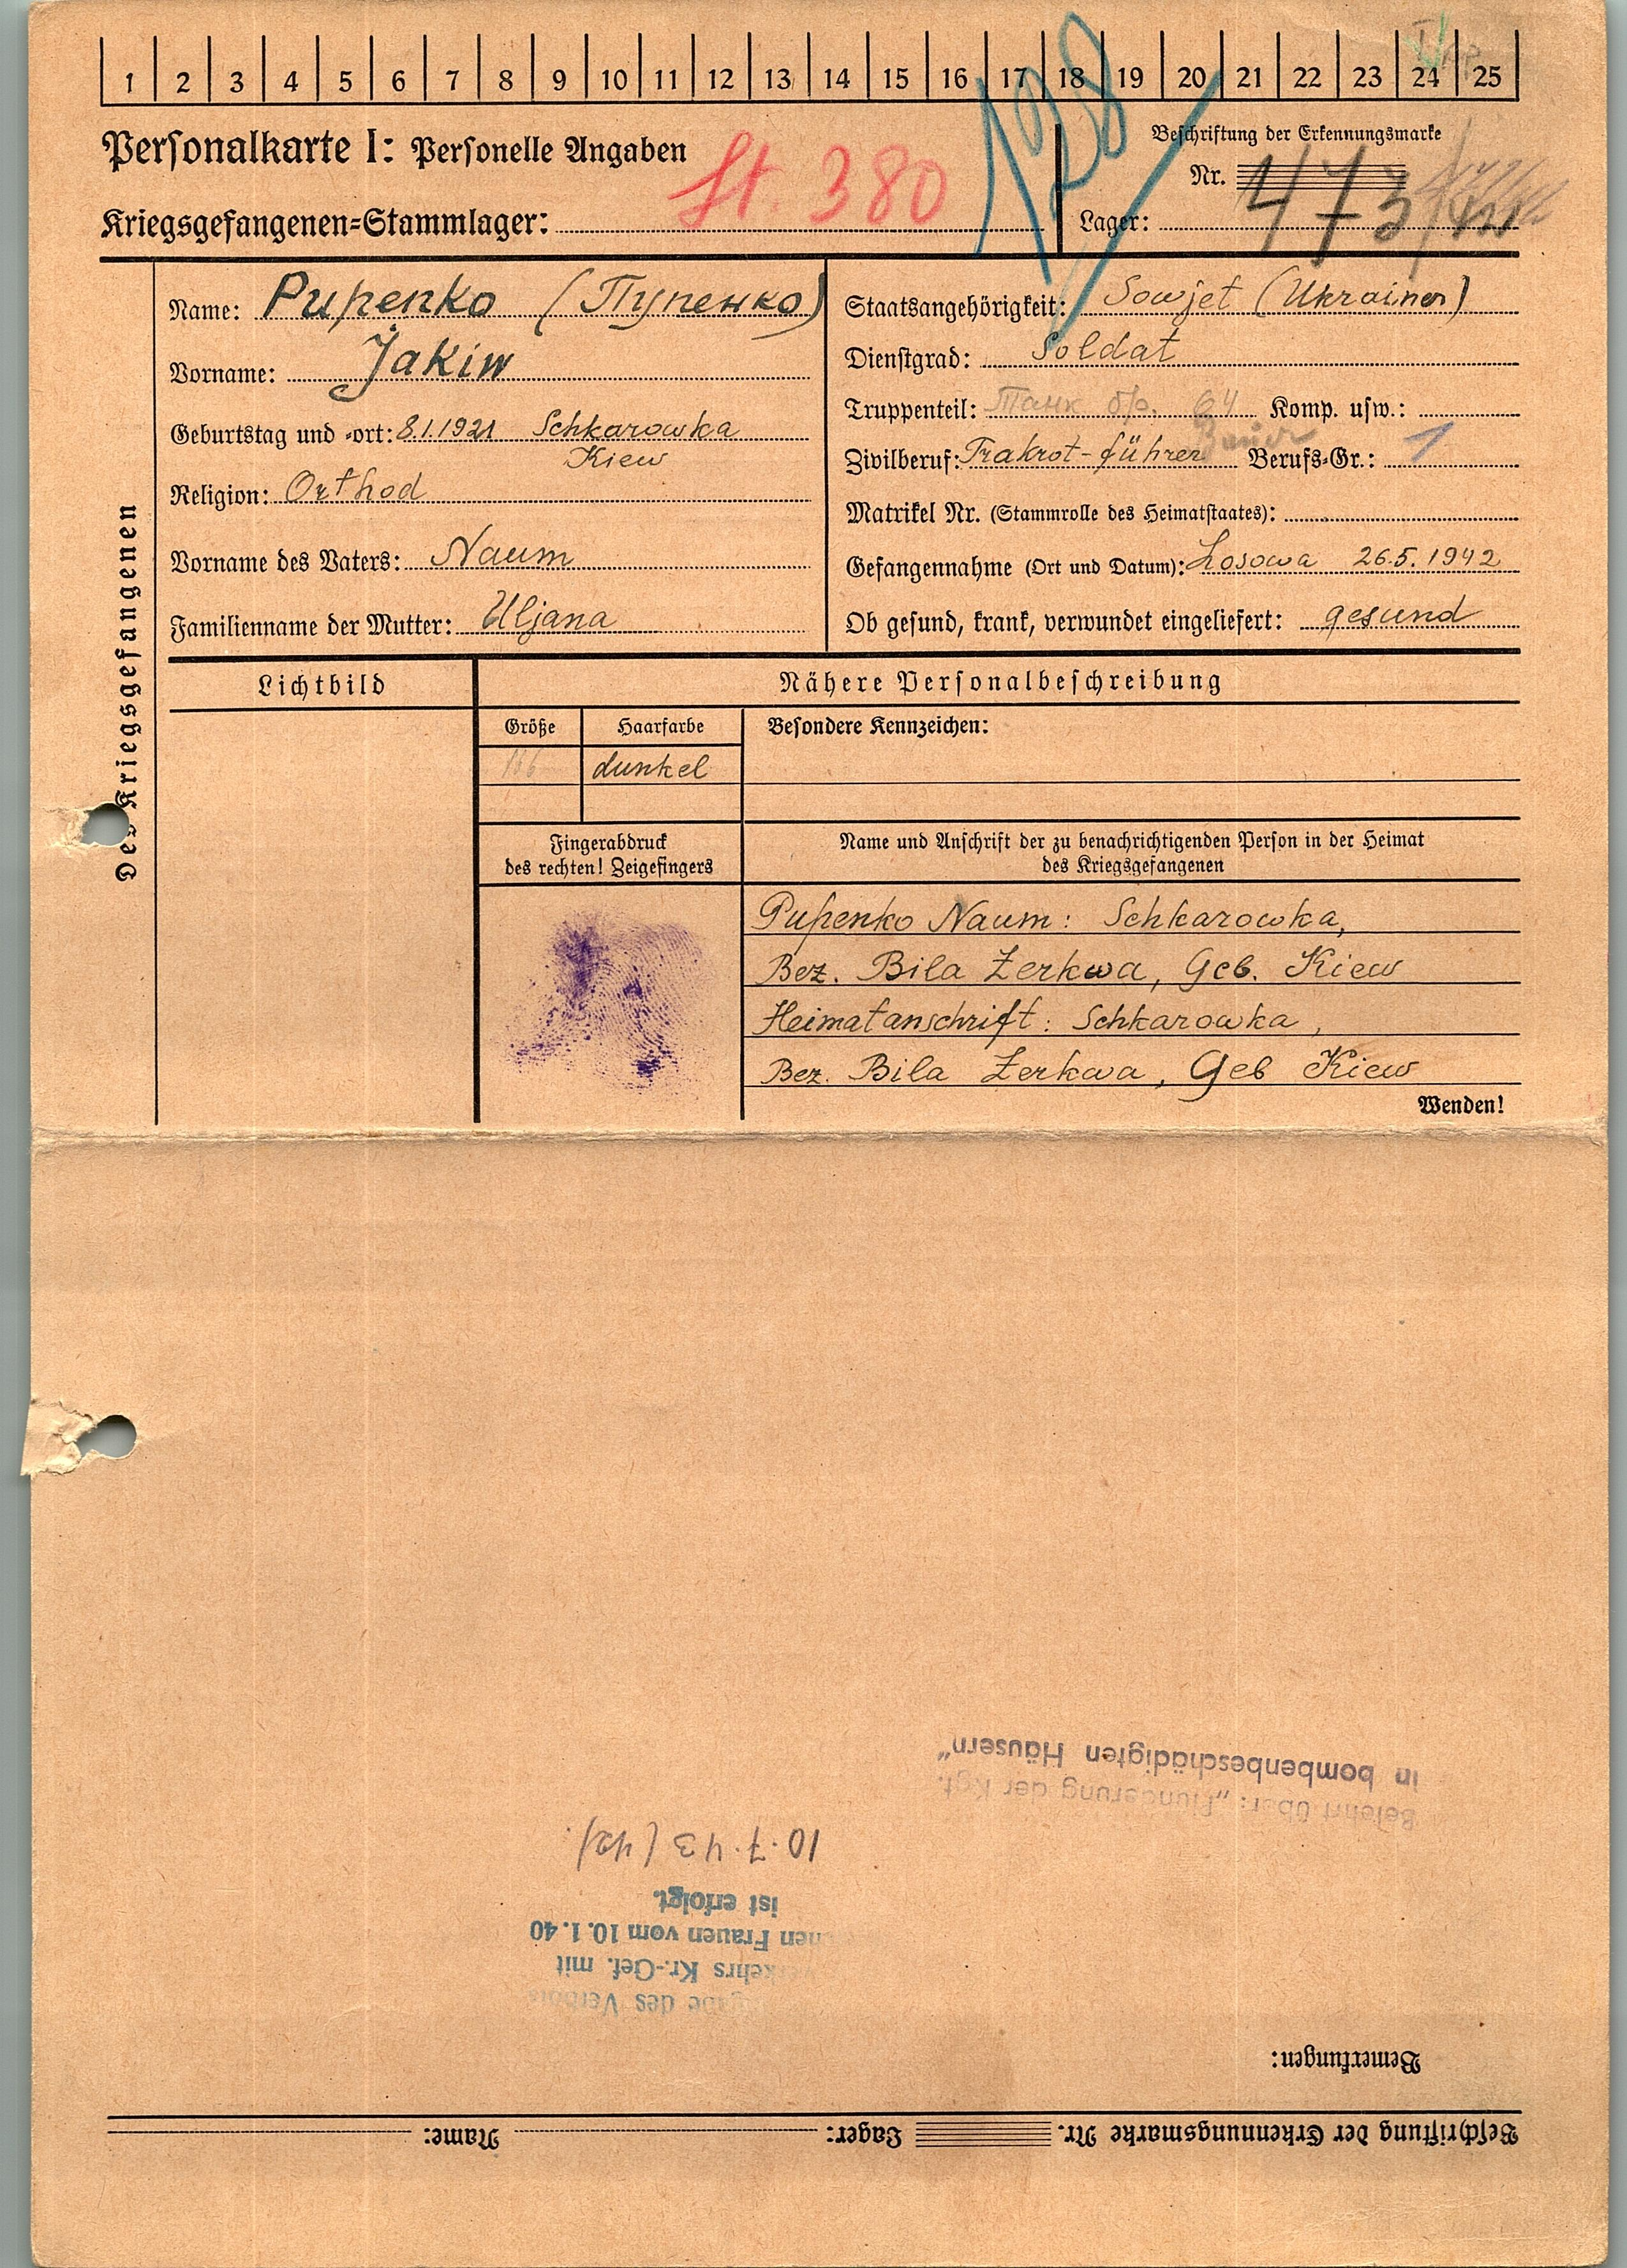 1 2 3 4 5 6 7 8 9 10 11 12 13 14 15 16 17 18 19 20 21 22 23 24 25
128
Personalkarte I: Personelle Angaben
Beschriftung der Erkennungsmarke
Nr. 473
Kriegsgefangenen=Stammlager: St. 380
Lager:
Des Kriegsgefangenen
Name: Pupenko (Пупенко)
Vorname: Jakiw
Geburtstag und =ort: 8.1.1921 Schkarowka
Kiew
Religion: Orthod
Vorname des Vaters: Naum
Familienname der Mutter: Uljana
Staatsangehörigkeit: Sowjet (Ukrainer)
Dienstgrad: Soldat
Truppenteil: Танк бр. 64 Komp. usw.:
Bauer
Zivilberuf: Trakrot-führer Berufs=Gr.: 1
Matrikel Nr. (Stammrolle des Heimatstaates):
Gefangennahme (Ort und Datum): Losowa 26.5.1942
Ob gesund, krank, verwundet eingeliefert: gesund
Lichtbild
Nähere Personalbeschreibung
Größe Haarfarbe Besondere Kennzeichen:
dunkel
Fingerabdruck
des rechten! Zeigefingers
Name und Anschrift der zu benachrichtigenden Person in der Heimat
des Kriegsgefangenen
Pupenko Naum: Schkarowka,
Bez. Bila Zerkwa, Geb. Kiew
Heimatanschrift: Schkarowka,
Bez. Bila Zerkwa, Geb Kiew
Wenden!
Beschriftung der Erkennungsmarke Nr. Lager: Name:
Bemerkungen:
des Verbots
kehrs Kr.-Gef. mit
Frauen vom 10.1.40
ist erfolgt.
10.7.43
Belehrt über: „Plünderung der Kgf.
in bombenbeschädigten Häusern“